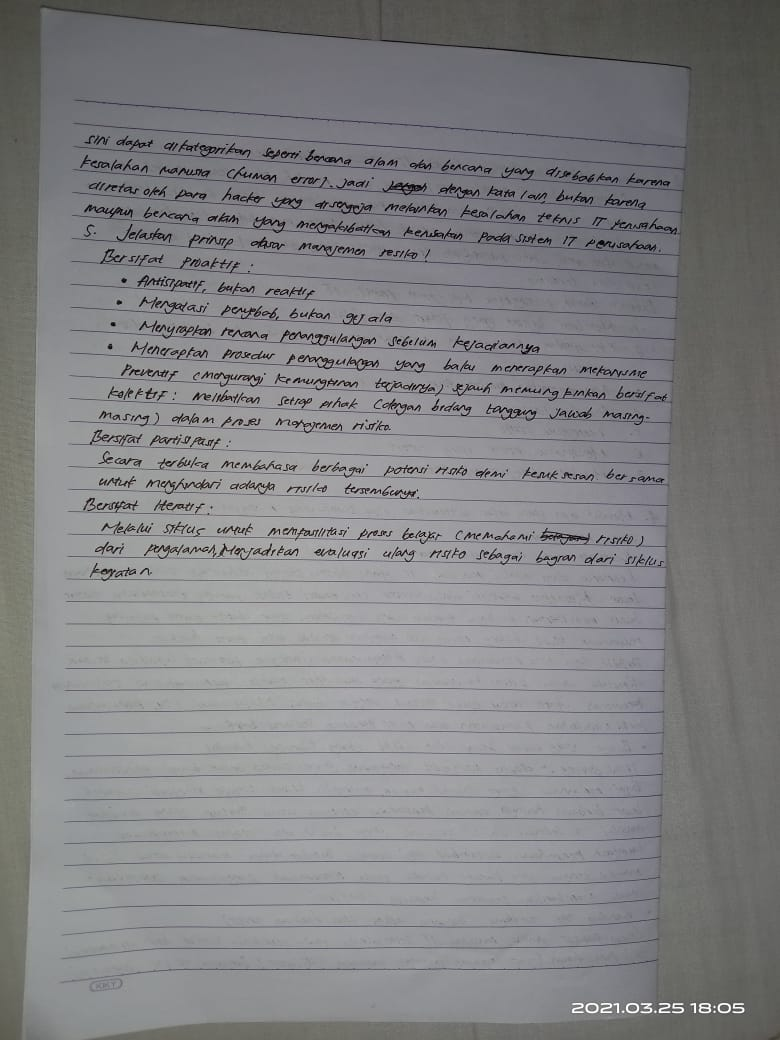 sini dapat dikategorikan seperti bencana alam dan bencana yang disebabkan karena
kesalahan manusia (human error). jadi dengan kata lain bukan karena
diretas oleh para hacker yang disengaja melainkan kesalahan teknis IT perusahaan
maupun bencana alam yang mengakibatkan kerusakan pada sistem IT perusahaan.
5. Jelaskan prinsip dasar manajemen resiko!
Bersifat Proaktif :
• Antisipatif, bukan reaktif
• Mengatasi penyebab, bukan gejala
• Menyiapkan rencana penanggulangan sebelum kejadiannya
• Menerapkan prosedur penanggulangan yang baku menerapkan mekanisme
Preventif (mengurangi kemungkinan terjadinya) sejauh memungkinkan bersifat
kolektif : melibatkan setiap pihak (dengan bidang tanggung jawab masing-
masing) dalam proses manajemen risiko.
Bersifat partisipasif :
Secara terbuka membahasa berbagai potensi risiko demi kesuksesan bersama
untuk menghindari adanya risiko tersembunyi.
Bersifat Iteratif :
Melalui siklus untuk memfasilitasi proses belajar (memahami risiko)
dari pengalaman, Menjadikan evaluasi ulang risiko sebagai bagian dari siklus
kegiatan
KKY
2021.03.25 18:05